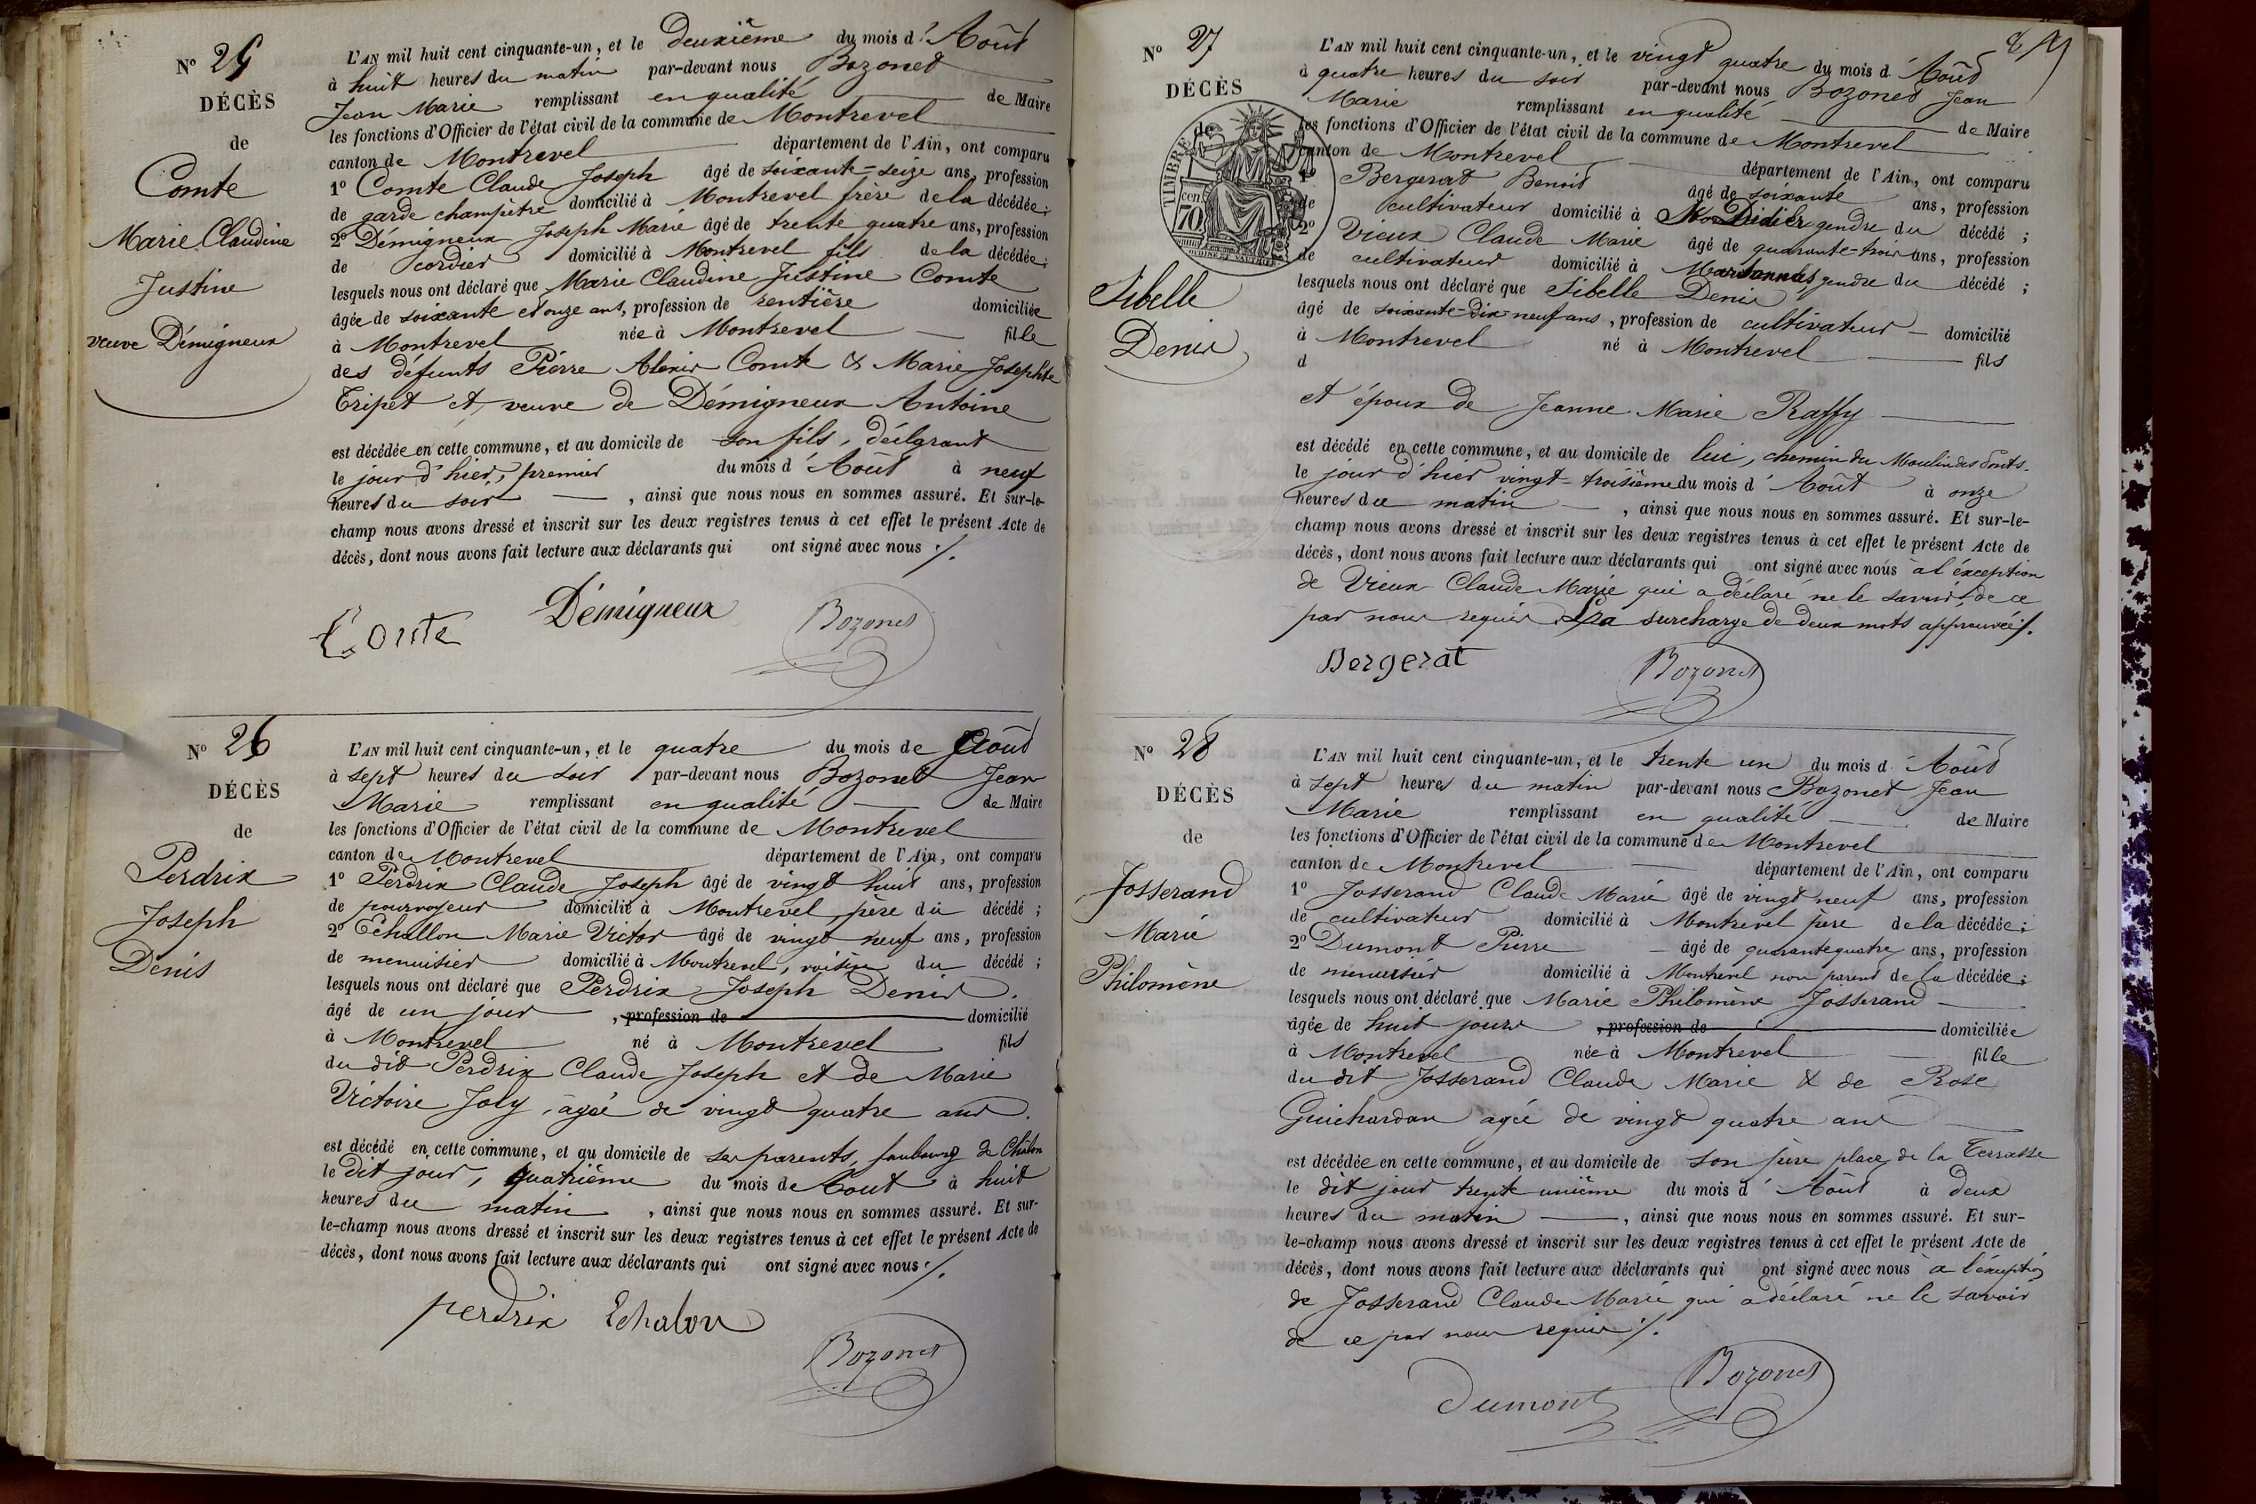 N° 25
DÉCÈS
de
Comte
Marie Claudine
Justine
veuve Démigneux
L'AN mil huit cent cinquante-un, et le deuxième du mois d'Août
à huit heures du matin par-devant nous Bozonet
Jean Marie remplissant en qualité de Maire
les fonctions d'Officier de l'état civil de la commune de Montrevel
canton de Montrevel département de l'Ain, ont comparu
1° Comte Claude Joseph âgé de soixante-seize ans, profession
de garde champêtre domicilié à Montrevel frère de la décédée;
2° Démigneux Joseph Marie âgé de trente quatre ans, profession
de cordier domicilié à Montrevel fils de la décédée;
lesquels nous ont déclaré que Marie Claudine Justine Comte
âgée de soixante et onze ans, profession de rentière domiciliée
à Montrevel née à Montrevel fille
des défunts Pierre Alexis Comte & Marie Josephte
Tripet et veuve de Démigneux Antoine
est décédée en cette commune, et au domicile de son fils, déclarant
le jour d'hier, premier du mois d'Août à neuf
heures du soir , ainsi que nous nous en sommes assuré. Et sur-le-
champ nous avons dressé et inscrit sur les deux registres tenus à cet effet le présent Acte de
décès, dont nous avons fait lecture aux déclarants qui ont signé avec nous ./.
Comte Démigneux Bozonet
N° 26
DÉCÈS
de
Perdrix
Joseph
Denis
L'AN mil huit cent cinquante-un, et le quatre du mois de Août
à sept heures du soir par-devant nous Bozonet Jean
Marie remplissant en qualité de Maire
les fonctions d'Officier de l'état civil de la commune de Montrevel
canton de Montrevel département de l'Ain, ont comparu
1° Perdrix Claude Joseph âgé de vingt huit ans, profession
de pourvoyeur domicilié à Montrevel, père du décédé ;
2° Echallon Marie Victor âgé de vingt neuf ans, profession
de menuisier domicilié à Montrevel, voisin du décédé ;
lesquels nous ont déclaré que Perdrix Joseph Denis.
âgé de un jour , profession de domicilié
à Montrevel né à Montrevel fils
du dit Perdrix Claude Joseph et de Marie
Victoire Joly, âgée de vingt quatre ans.
est décédé en cette commune, et au domicile de ses parents, faubourg de Châlon
le dit jour, quatrième du mois de Août à huit
heures du matin , ainsi que nous nous en sommes assuré. Et sur-
le-champ nous avons dressé et inscrit sur les deux registres tenus à cet effet le présent Acte de
décès, dont nous avons fait lecture aux déclarants qui ont signé avec nous ./.
perdrix Echalon
Bozonet
N° 27
DÉCÈS
de
TIMBRE
70
cen.
Sibelle
Denis
L'AN mil huit cent cinquante-un, et le vingt quatre du mois d'Août
à quatre heures du soir par-devant nous Bozonet Jean
Marie remplissant en qualité de Maire
les fonctions d'Officier de l'état civil de la commune de Montrevel
canton de Montrevel département de l'Ain, ont comparu
1° Bergerat Benoit âgé de soixante ans, profession
de cultivateur domicilié à St Didier gendre du décédé ;
2° Vieux Claude Marie âgé de quarante-trois ans, profession
de cultivateur domicilié à Marsonnas, gendre du décédé ;
lesquels nous ont déclaré que Sibelle Denis
âgé de soixante-dix-neuf ans, profession de cultivateur domicilié
à Montrevel né à Montrevel fils
d
et époux de Jeanne Marie Raffy
est décédé en cette commune, et au domicile de lui, chemin du Moulin des Ponts.
le jour d'hier vingt-troisième du mois d'Août à onze
heures du matin , ainsi que nous nous en sommes assuré. Et sur-le-
champ nous avons dressé et inscrit sur les deux registres tenus à cet effet le présent Acte de
décès, dont nous avons fait lecture aux déclarants qui ont signé avec nous à l'éxception
de Vieux Claude Marie qui a déclaré ne le savoir, de ce
par nous requis. La surcharge de deux mots approuvée ./.
Bergerat Bozonet
N° 28
DÉCÈS
de
Josserand
Marie
Philomène
L'AN mil huit cent cinquante-un, et le trente un du mois d'Août
à sept heures du matin par-devant nous Bozonet Jean
Marie remplissant en qualité de Maire
les fonctions d'Officier de l'état civil de la commune de Montrevel
canton de Montrevel département de l'Ain, ont comparu
1° Josserand Claude Marie âgé de vingt neuf ans, profession
de cultivateur domicilié à Montrevel père de la décédée;
2° Dumont Pierre âgé de quarante quatre ans, profession
de menuisier domicilié à Montrevel non parent de la décédée;
lesquels nous ont déclaré que Marie Philomène Josserand
âgée de huit jours , profession de domiciliée
à Montrevel née à Montrevel fille
du dit Josserand Claude Marie & de Rose
Guichardan agée de vingt quatre ans
est décédée en cette commune, et au domicile de son père place de la Terrasse
le dit jour trente unième du mois d'Août à deux
heures du matin , ainsi que nous nous en sommes assuré. Et sur-
le-champ nous avons dressé et inscrit sur les deux registres tenus à cet effet le présent Acte de
décès, dont nous avons fait lecture aux déclarants qui ont signé avec nous à l'éxception
de Josserand Claude Marie qui a déclaré ne le savoir
de ce par nous requis ./.
Dumont Bozonet